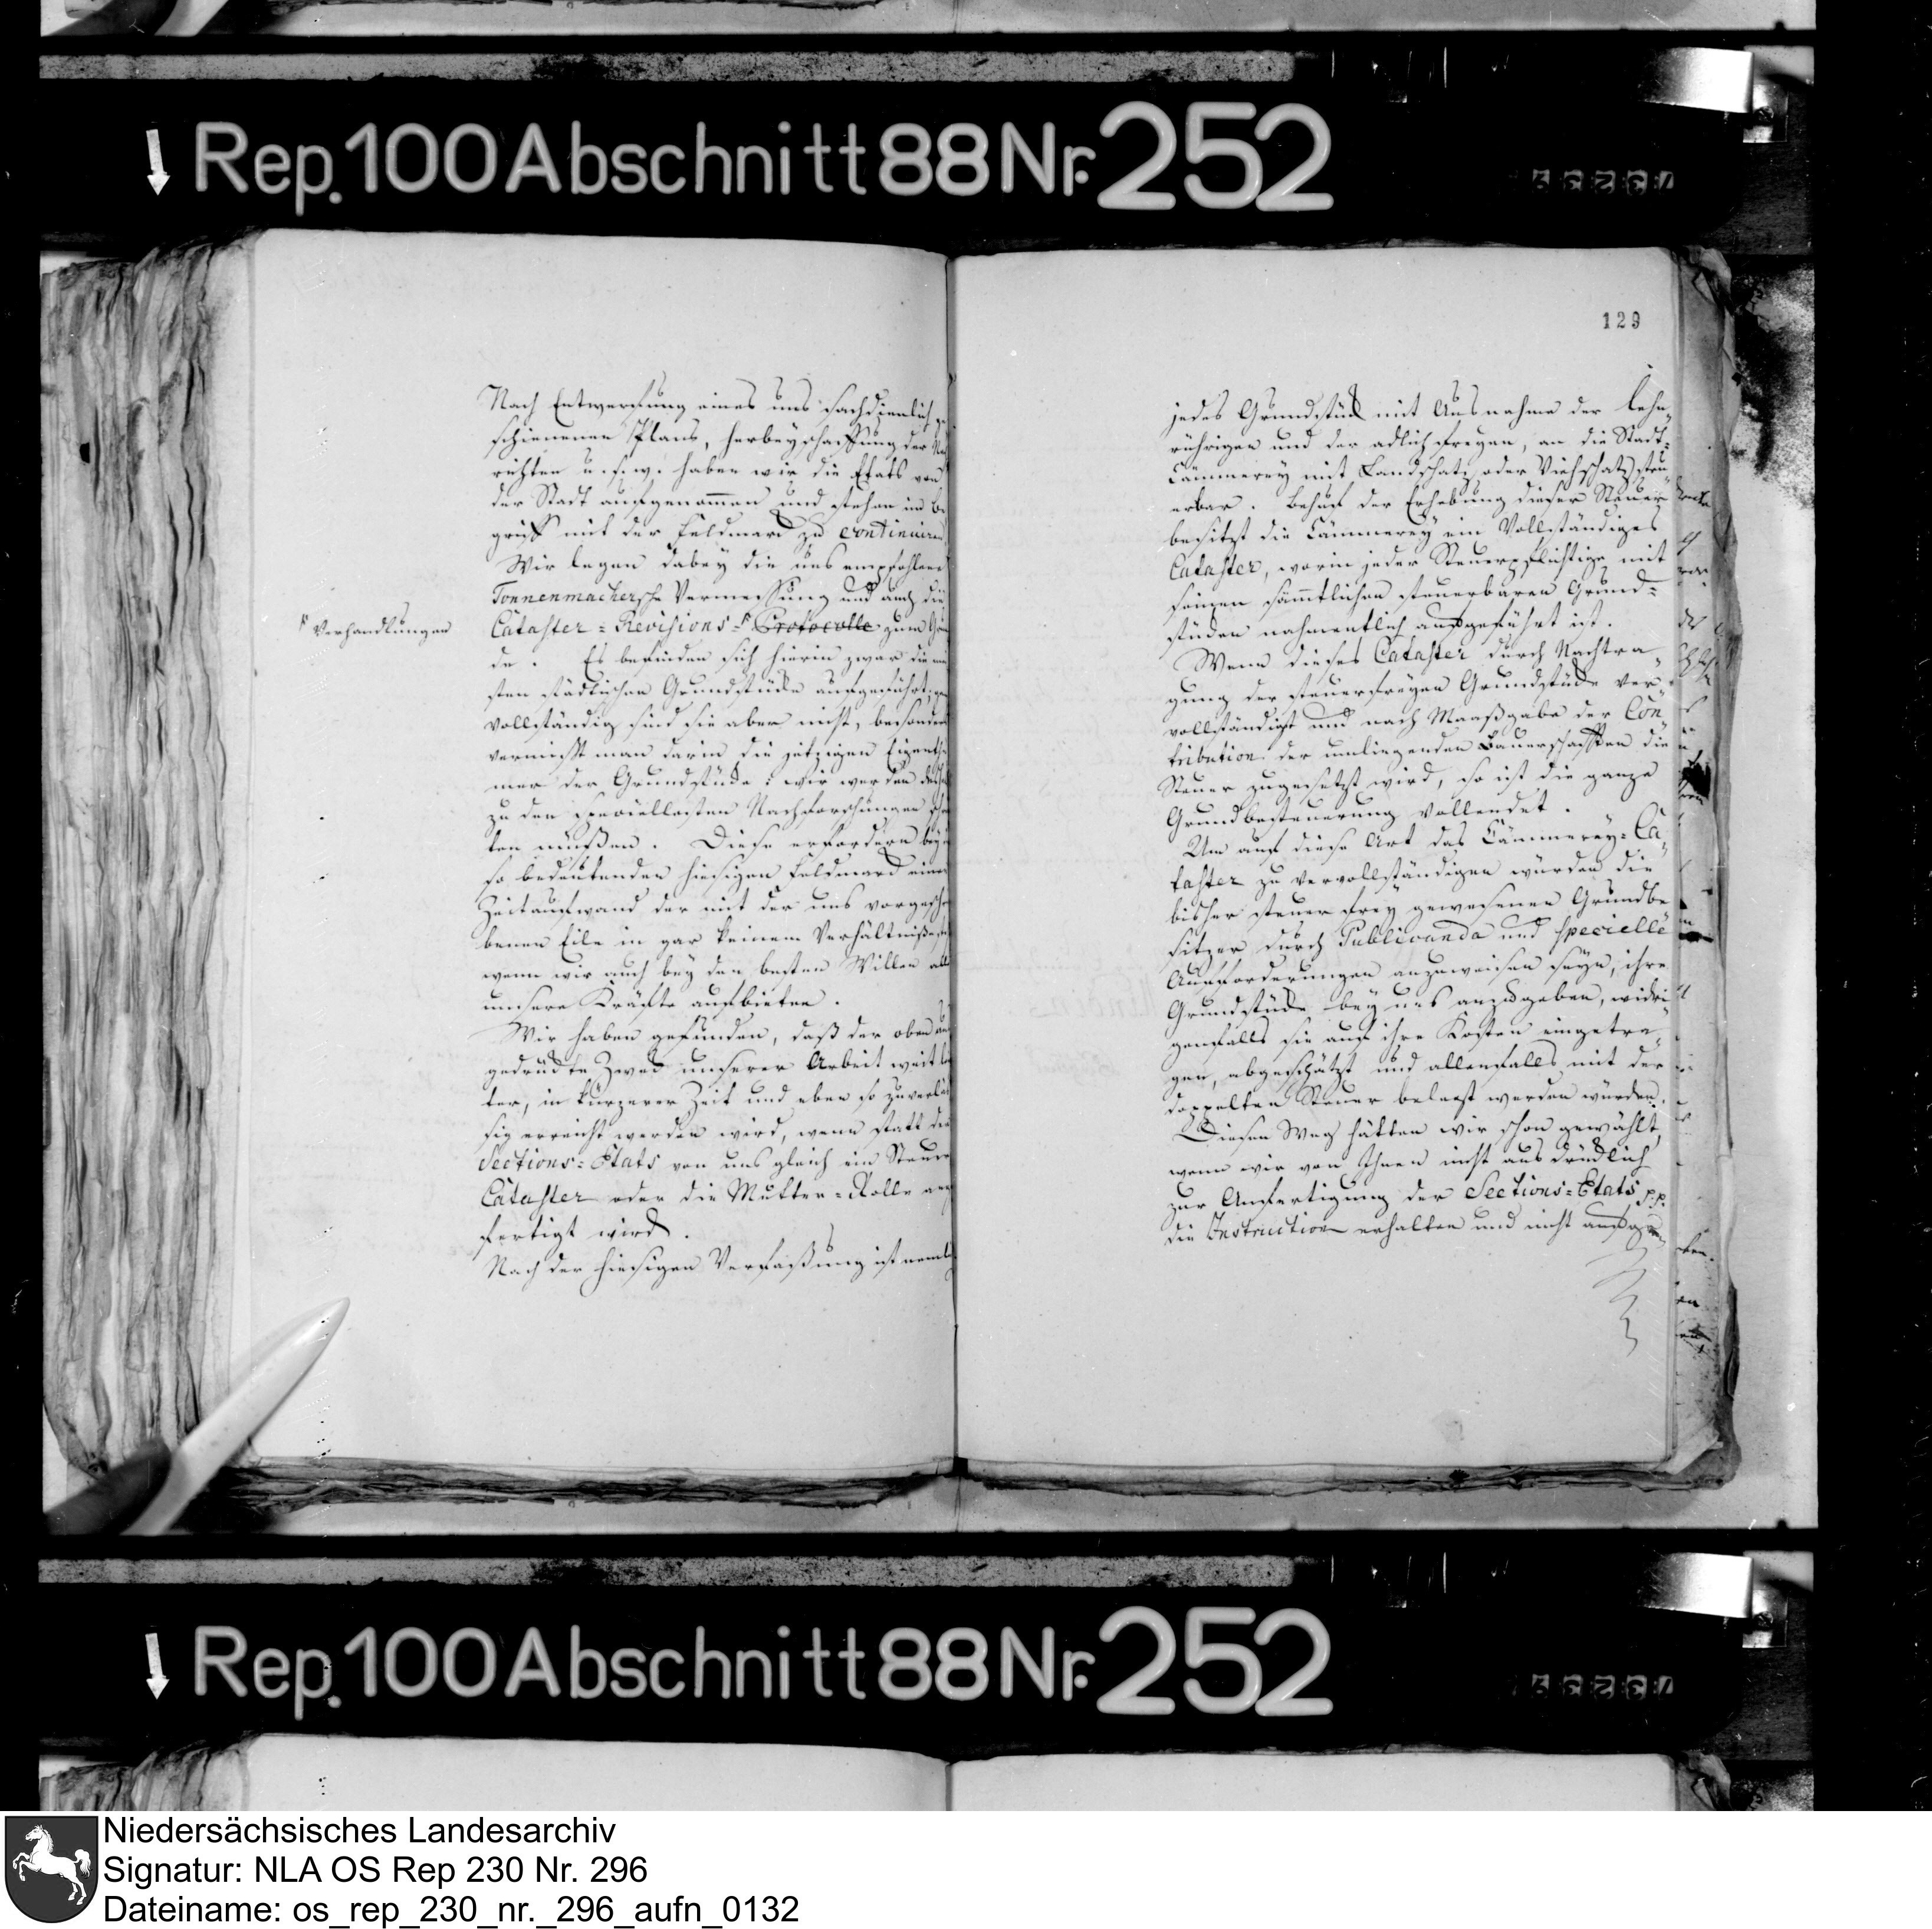 Rep. 100 Abschnitt 88 Nr. 252
Nach Entwerfung eines uns sachdienlich
schienenen Plans, Herbeyschaffung der
richten u. s. w. haben wir die Etats von
der Stadt aufgenommen und stehen im Be
griff mit der Feldmarck zu continuiren
Wir legen dabey die uns empfohlene
Tonnenmachersche Vermessung und auch die
Verhandlungen
Cataster-Revisions-Protocolle zum Grun
de. Es befinden sich hierin zwar die mei
sten städtischen Grundstücke aufgeführt;
vollständig sind sie aber nicht, besonders
vermißt man darin die jetzigen Eigenthü
mer der Grundstücke; wir werden
zu den speciellesten Nachforschungen
ten müßen. Diese erfordern bey
so bedeutenden hiesigen Feldmarck einen
Zeitaufwand der mit der uns vorgeschrie
benen Eile in gar keinem Verhältniße
wenn wir auch bey den besten Willen alle
unsere Kräfte aufbieten.
Wir haben gefunden, daß der oben aus
gedrückte Zweck unserer Arbeit weit
ter, in kürzerer Zeit und eben so zuverläs
sig erreicht werden wird, wenn statt der
Sections-Etats von uns gleich ein Steuer
Cataster oder die Mutter-Rolle ange
fertigt wird.
Nach der hiesigen Verfaßung ist nemlich
129
jedes Grundstück mit Ausnahme der Lehn
rührigen und der adlich freyen, an die Stadt-
Cämmerey mit Landschatz oder Viehschatz steu
erbar. Behuf der Erhebung dieser Steuer
besitzt die Cämmerey ein Vollständiges
Cataster, worin jeder Steuerpflichtige mit
seinen sämmtlichen steuerbaren Grund-
stücken nahmentlich aufgeführt ist.
Wenn dieses Cataster durch Nachtra
gung der steuerfreyen Grundstücke ver
vollständigt und nach Maaßgabe der Con
tribution der umliegenden Bauerschafften die
Steuer zugesetzt wird, so ist die ganze
Grundbesteuerung vollendet.
Um auf diese Art das Cämmerey-Ca
taster zu vervollständigen würden die
bisher steuer frey gewesenen Grundbe
sitzer durch Publicanda und specielle
Aufforderungen anzuweisen seyn, ihre
Grundstücke bey uns anzugeben, widri
genfalls sie auf ihre Kosten eingetra
gen, abgeschätzt und allenfalls mit der
doppelten Steuer belegt werden würden.
Diesen Weg hätten wir schon gewählt,
wenn wir von Ihnen nicht ausdrücklich
zur Anfertigung der Sections-Etats p. p.
die Instruction erhalten und nicht
Rep. 100 Abschnitt 88 Nr. 252
Niedersächsisches Landesarchiv
Signatur: NLA OS Rep 230 Nr. 296
Dateiname: os_rep_230_nr._296_aufn_0132